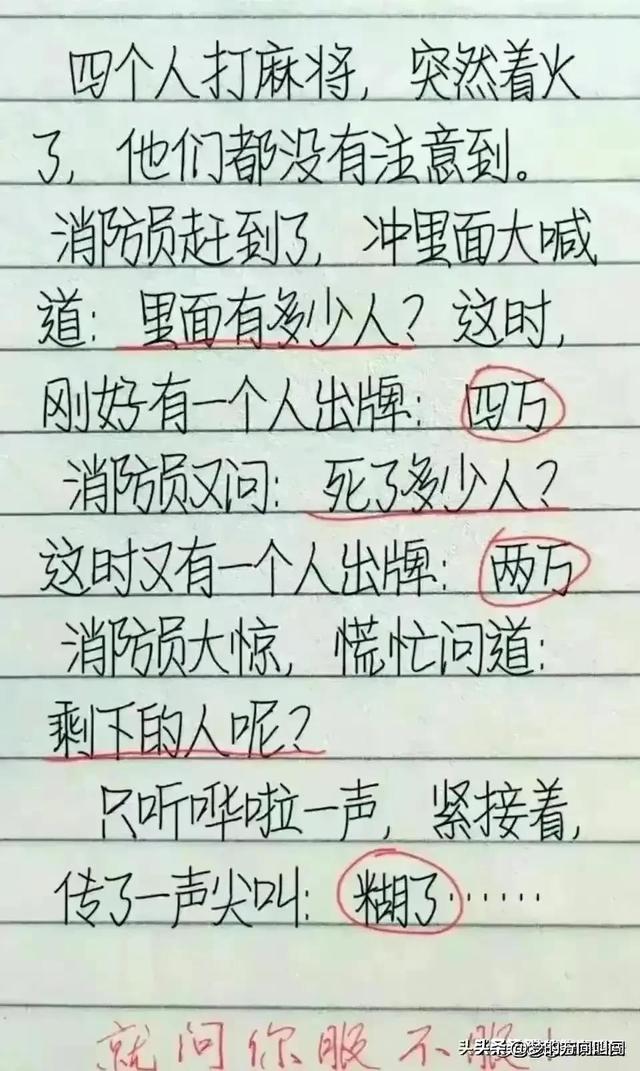 四个人打麻将，突然着火
了，他们都没有注意到。
消防员赶到了，冲里面大喊
道：里面有多少人？这时，
刚好有一个人出牌：四万
消防员又问：死了多少人？
这时又有一个人出牌：两万
消防员大惊，慌忙问道：
剩下的人呢？
只听哗啦一声，紧接着，
传了一声尖叫：糊了……
就问你服不服！
头条 @梦的方向叫闯